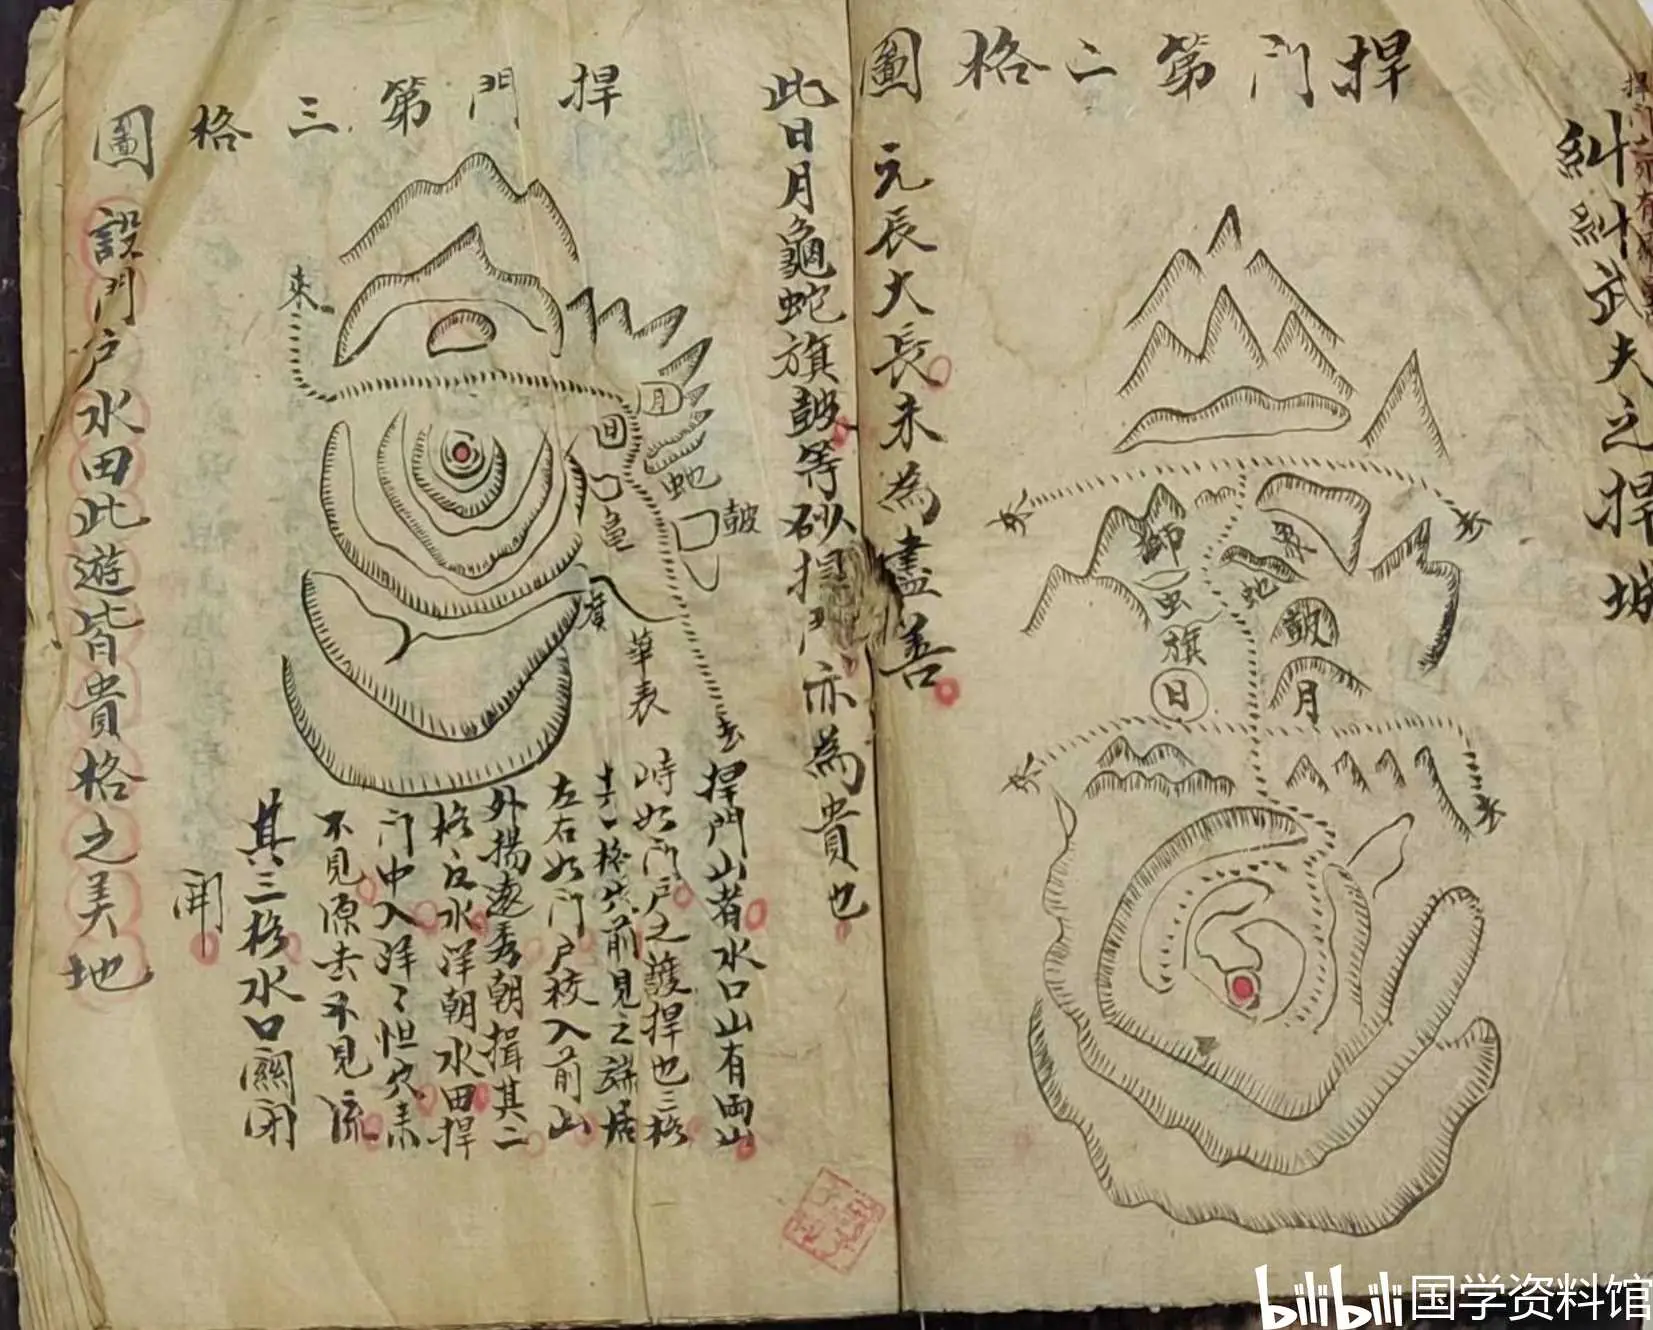 糾糾武夫之捍城
捍門第二格圖
來
來
獅
象
蛇
旗
鼓
日
月
來
來
元辰大長未為盡善
此日月龜蛇旗鼓等砂捍門亦為貴也
捍門第三格圖
來
月
日
蛇
鼓
龜
華表
去
捍門山者水口山有兩山
峙如門戶之護捍也三格
吉一格穴前見之端居
左右如門戶校入前山
外揚遠秀朝揖其二
格右水洋朝水田捍
門中入洋〻怛穴素
不見源去不見流
其三格水口關闭
開
設門戶水田此遊皆貴格之美地
bilibili 国学资料馆